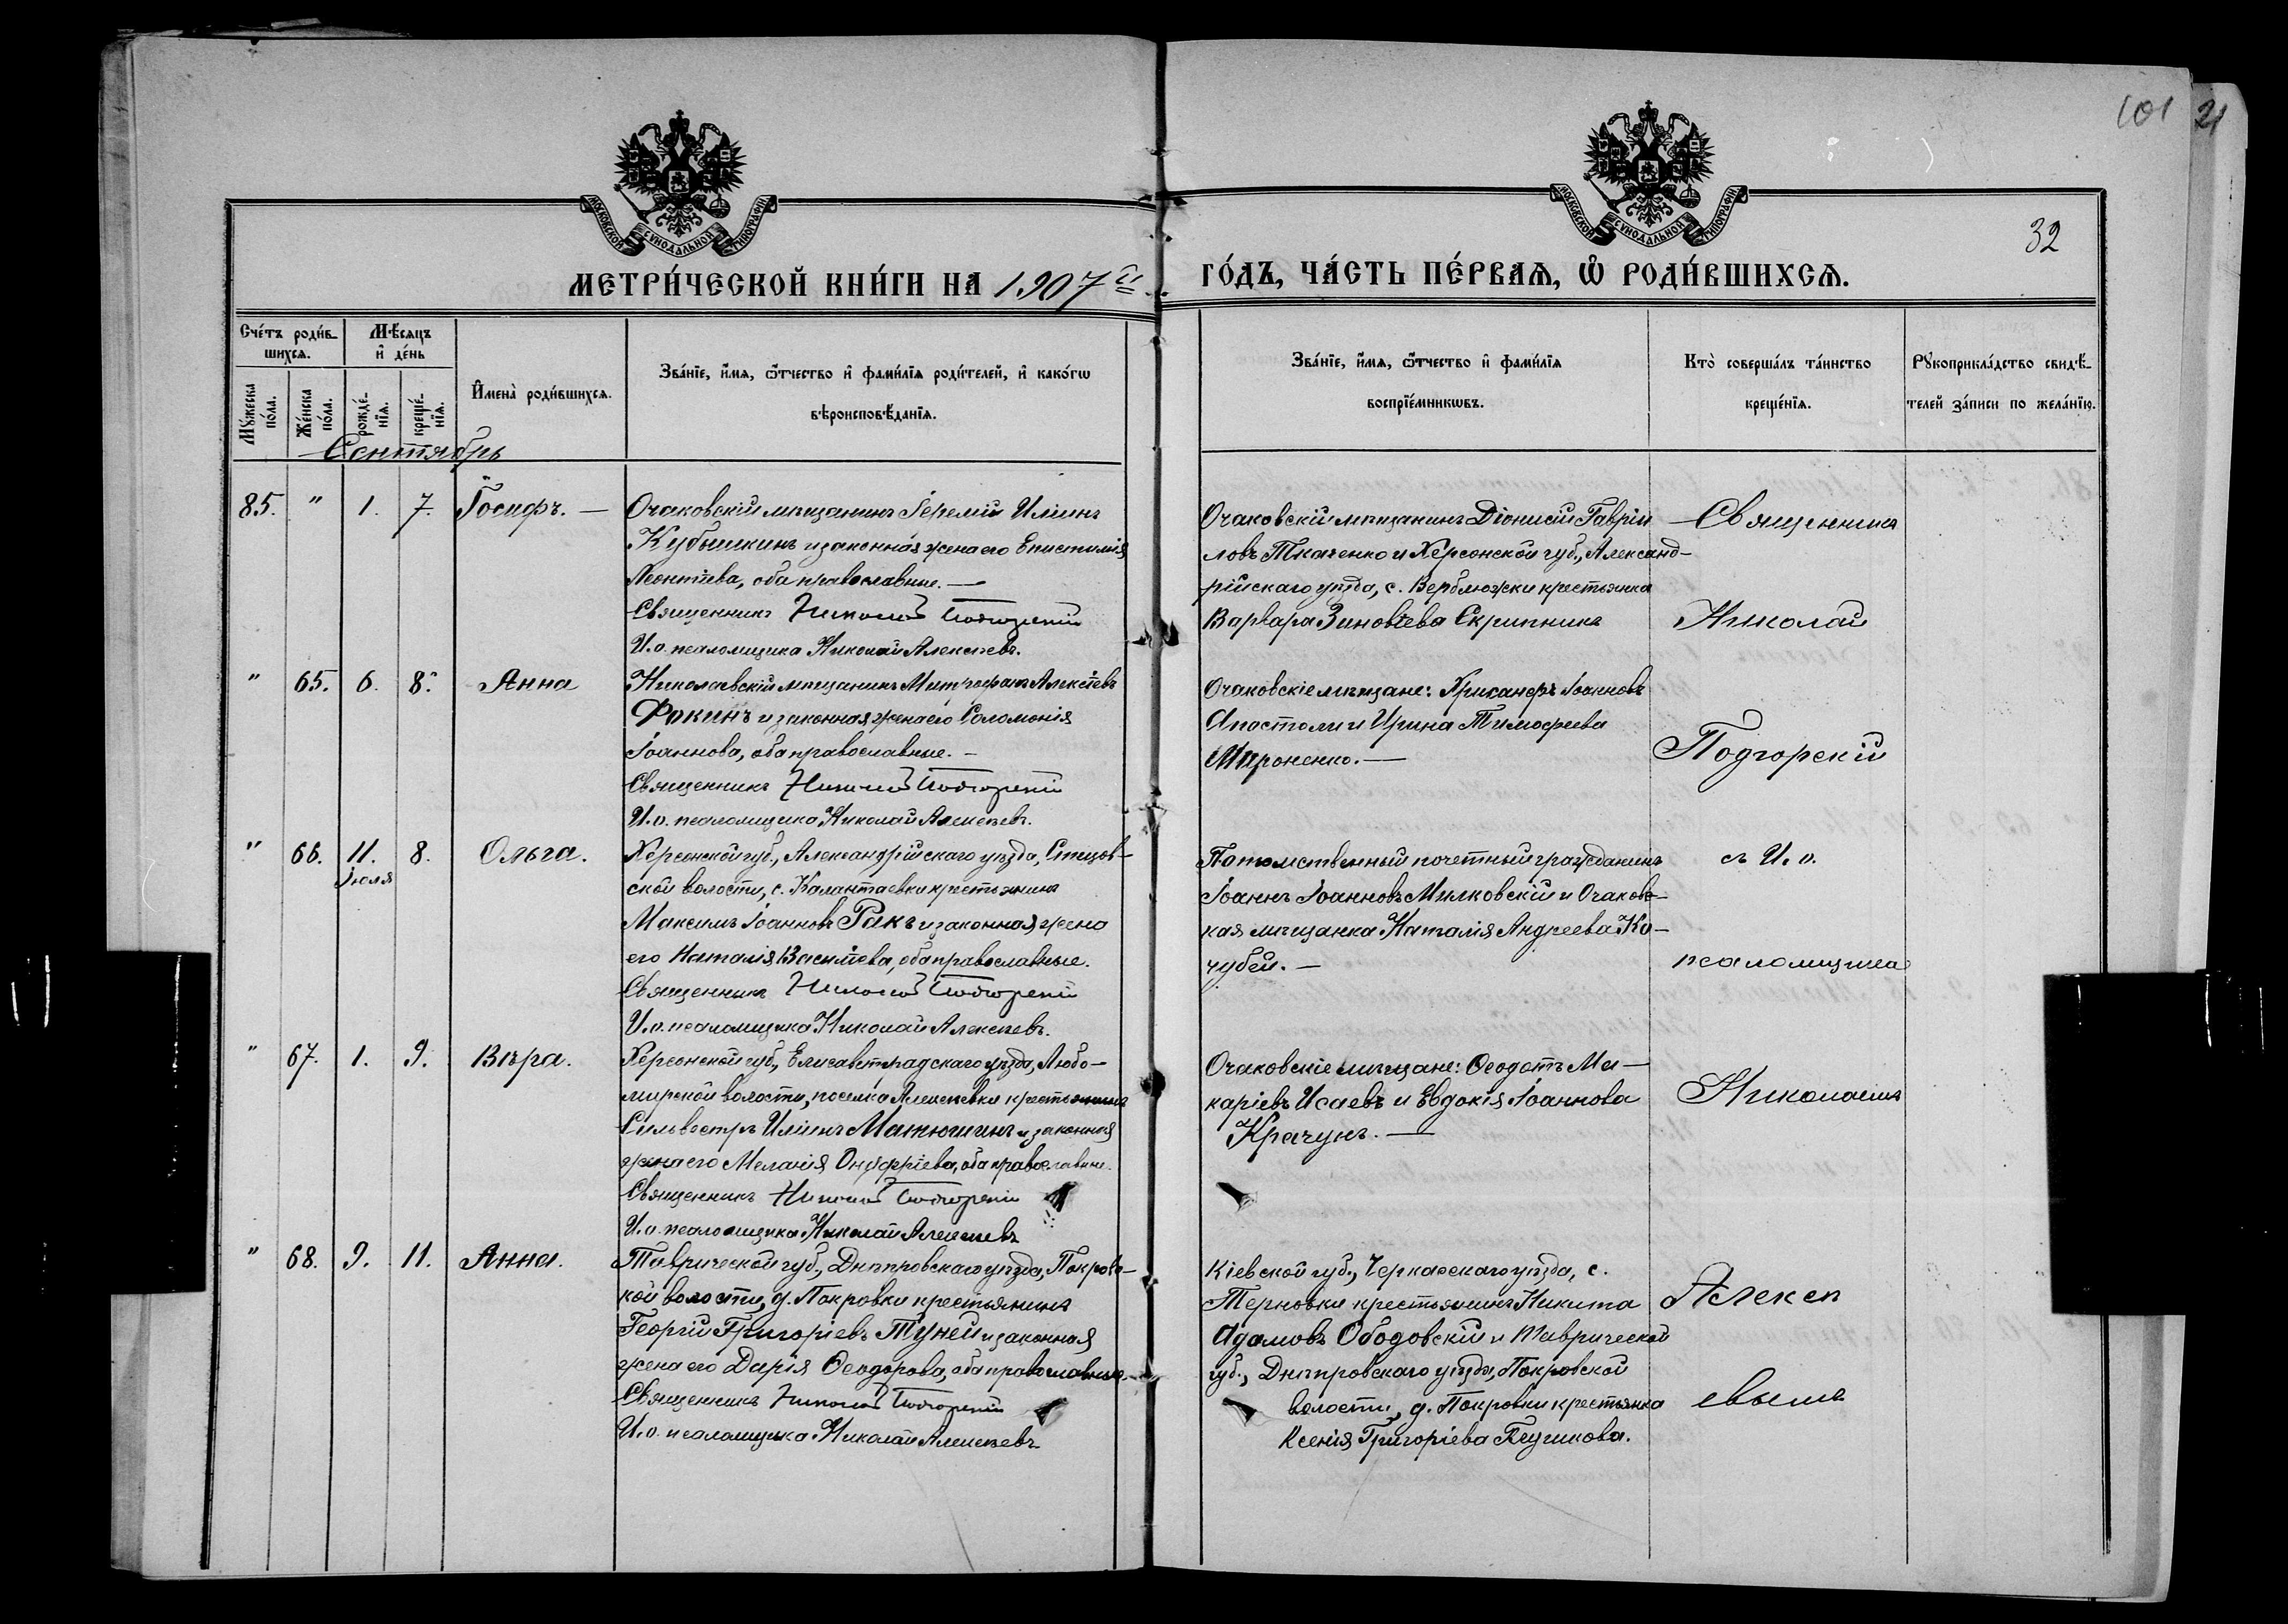 101 21
32
МОСКОВСКОЙ СѴНОДАЛЬНОЙ ТИПОГРАФІИ
МОСКОВСКОЙ СѴНОДАЛЬНОЙ ТИПОГРАФІИ
МЕТРИ́ЧЕСКОЙ КНИ́ГИ НА 1907й ГО́ДЪ, ЧА́СТЬ ПЕ́РВАѦ, Ѽ РОДИ́ВШИХСѦ.
Сче́тъ роди́в-
шихсѧ.
Мꙋ́жеска по́ла.
Же́нска по́ла.
Мѣ́сѧцъ
и҆ де́нь
рожде́-
нїѧ.
креще́-
нїѧ.
И҆мена̀ роди́вшихсѧ.
Зва́нїе, и҆́мѧ, ѻ҆́тчество и҆ фами́лїѧ роди́телей, и҆ како́гѡ
вѣроисповѣ́данїѧ.
Зва́нїе, и҆́мѧ, ѻ҆́тчество и҆ фами́лїѧ
воспрїе́мникѡвъ.
Кто̀ соверша́лъ та́инство
креще́нїѧ.
Рꙋкоприкла́дство свидѣ́-
телей за́писи по жела́нїю.
Сентябрь
85. " 1. 7. Іосифъ. —
Очаковскій мѣщанинъ Іеремій Иліинъ
Кубышкинъ и законная жена его Епистимія
Леонтіева, оба православные. —
Священникъ Николай Подгорскій
И. о. псаломщика Николай Алексѣевъ.
Очаковскій мѣщанинъ Діонисій Гаврии
ловъ Ткаченко и Херсонской губ., Александ-
рійскаго уѣзда, с. Верблюжки крестьянка
Варвара Зиновіева Скрипникъ
" 65. 6. 8. Анна
Николаевскій мѣщанинъ Митрофанъ Алексіевъ
Фокинъ и законная жена его Соломонія
Іоаннова, оба православные. —
Священникъ Николай Подгорскій
И. о. псаломщика Николай Алексѣевъ.
Очаковскіе мѣщане: Хрисанфъ Іоанновъ
Апостоли и Ирина Тимофеева
Мироненко. —
" 66. 11. Іюля 8. Ольга.
Херсонской губ., Александрійскаго уѣзда, Стецов-
ской волости, с. Калантаевки крестьянинъ
Максимъ Іоанновъ Ракъ и законная жена
его Наталія Василіева, оба православные.
Священникъ Николай Подгорскій
И. о. псаломщика Николай Алексѣевъ.
Потомственный почетный гражданинъ
Іоаннъ Іоанновъ Милковскій и Очаков-
кая мѣщанка Наталія Андреева Ко-
чубей. —
" 67. 1. 9. Вѣра.
Херсонской губ., Елисаветградскаго уѣзда, Любо-
мирской волости, поселка Алексѣевки крестьянинъ
Сильвестръ Иліинъ Матюшинъ и законная
жена его Меланія Онуфріева, оба православные.
Священникъ Николай Подгорскій
И. о. псаломщика Николай Алексѣевъ
Очаковскіе мѣщане: Ѳеодотъ Ма-
каріевъ Исаевъ и Евдокія Іоаннова
Крачунъ. —
" 68. 9. 11. Анна.
Таврической губ., Днѣпровскаго уѣзда, Покров-
кой волости, д. Покровки крестьянинъ
Георгій Григоріевъ Туней и законная
жена его Дарія Ѳеодорова, оба православные. —
Священникъ Николай Подгорскій
И. о. псаломщика Николай Алексѣевъ
Кіевской губ., Черкасскаго уѣзда, с.
Терновки крестьянинъ Никита
Адамовъ Ободовскій и Таврической
губ., Днѣпровскаго уѣзда, Покровской
волости, д. Покровки крестьянка
Ксенія Григоріева
Священникъ
Николай
Подгорскій
съ И. о.
псаломщика
Николаемъ
Алексѣ
евымъ